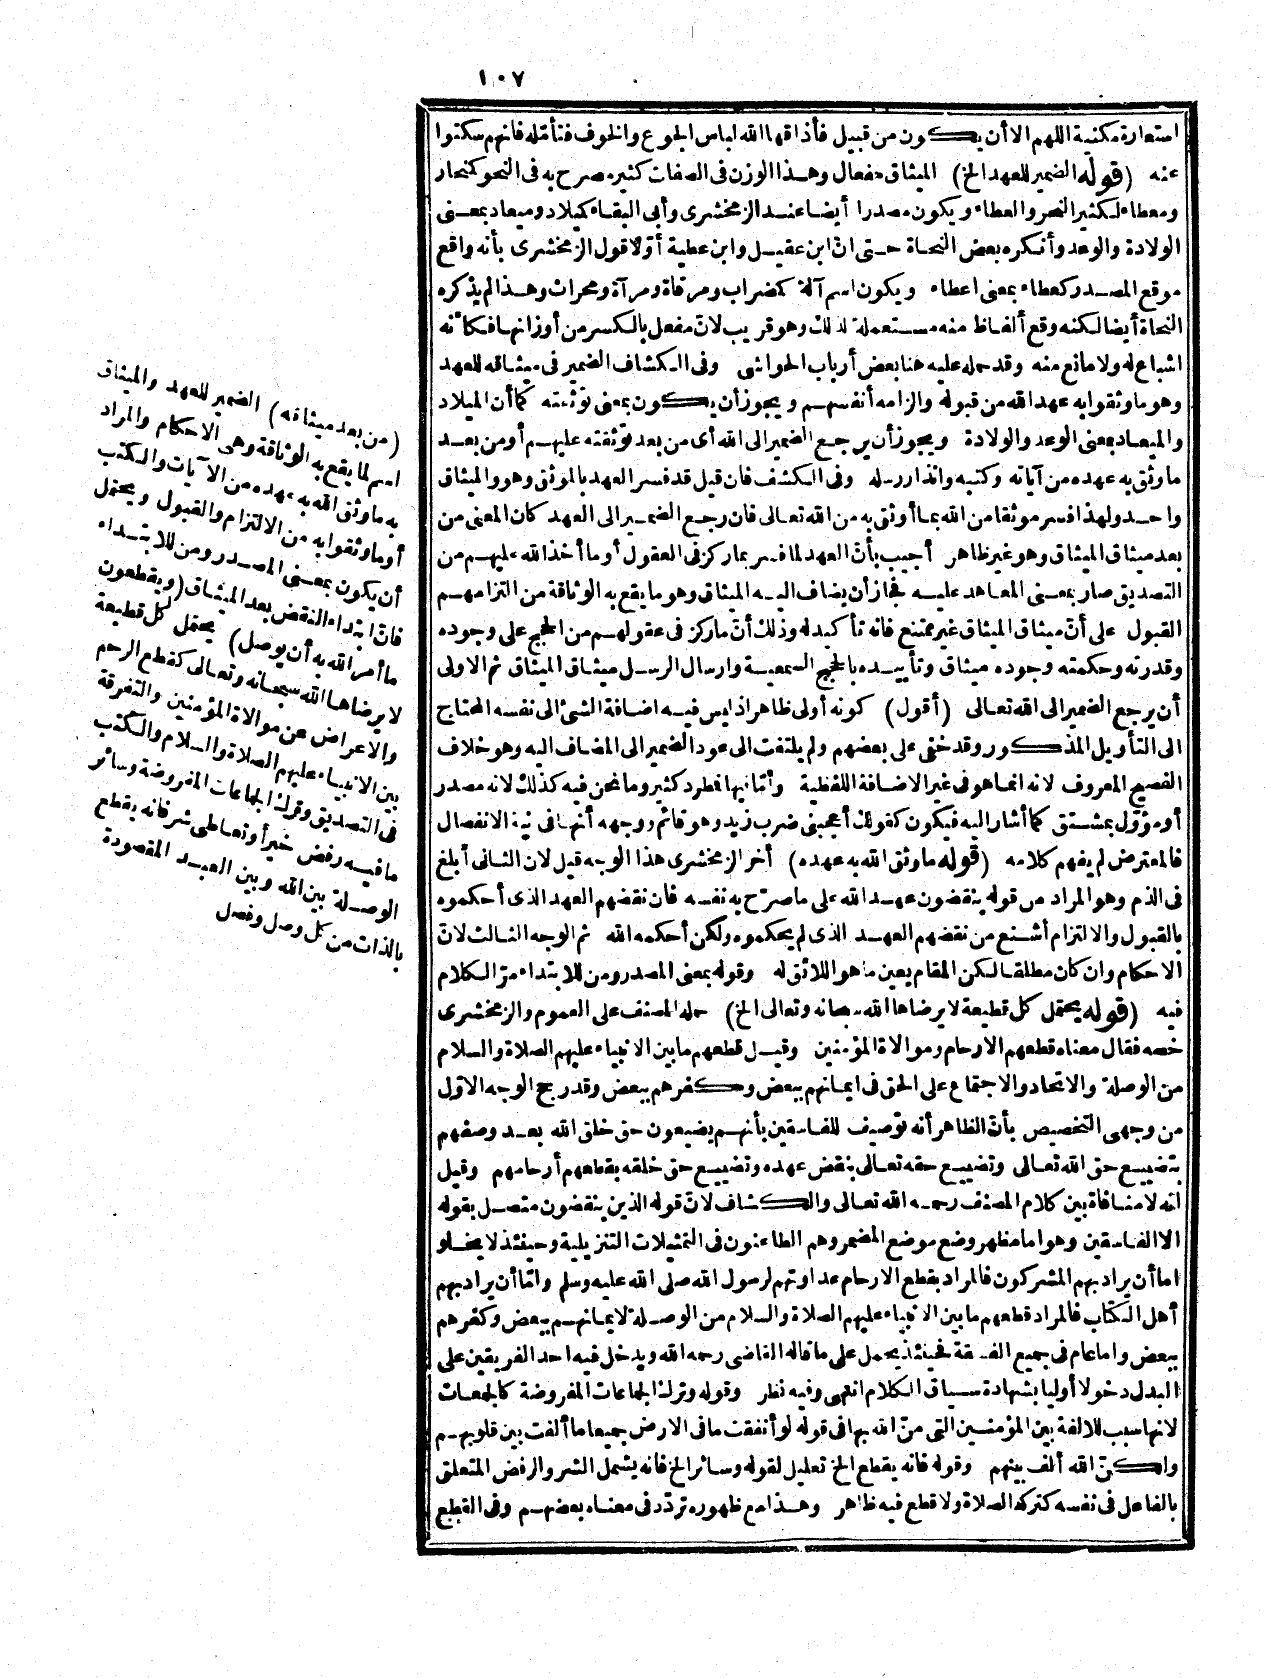 ١٠٧
استعارة مكنية اللهم الا أن يكون من قبيل فأذاقها الله لباس الجوع والخوف فتأمله فانهم سكتوا
عنه (قوله الضمير للعهد الخ) الميثاق مفعال وهذا الوزن في الصفات كثير مصرح به في النحو كنحار
ومعطاء لكثير النحر والعطاء ويكون مصدرا أيضا عند الزمخشرى وأبى البقاء كميلاد وميعاد بمعنى
الولادة والوعد وأنكره بعض النحاة حتى انّ ابن عقيل وابن عطية أوّلا قول الزمخشرى بأنه واقع
موقع المصدر كعطاء بمعنى اعطاء ويكون اسم آلة كمضراب ومرقاة ومرآة ومحراث وهذا لم يذكره
النحاة أيضا لكنه وقع ألفاظ منه مستعملة لذلك وهو قريب لانّ مفعل بالكسر من أوزانها فكأنه
اشباع له ولا مانع منه وقد حمله عليه هنا بعض أرباب الحواشى وفى الكشاف الضمير فى ميثاقه للعهد
وهو ما وثقوا به عهد الله من قبوله والزامه أنفسهم ويجوز أن يكون بمعنى توثقته كما أن الميلاد
والميعاد بمعنى الوعد والولادة ويجوز أن يرجع الضمير الى الله أى من بعد توثقته عليهم أو من بعد
ما وثق به عهده من آياته وكتبه وانذار رسله وفى الكشف فان قيل قد فسر العهد بالموثق وهو والميثاق
واحد ولهذا فسر موثقا من الله بما أوثق به من الله تعالى فان رجع الضمير الى العهد كان المعنى من
بعد ميثاق الميثاق وهو غير ظاهر أجيب بأنّ العهد لما فسر بما ركز فى العقول أو ما أخذ الله عليهم من
التصديق صار بمعنى المعاهد عليه فجاز أن يضاف اليه الميثاق وهو ما يقع به الوثاقة من التزامهم
القبول على أنّ ميثاق الميثاق غير ممتنع فانه تأكيد له وذلك أنّ ما ركز فى عقولهم من الحجج على وجوده
وقدرته وحكمته وجوده ميثاق وتأييده بالحجج السمعية وارسال الرسل ميثاق الميثاق ثم الاولى
أن يرجع الضمير الى الله تعالى (أقول) كونه أولى ظاهر اذ ليس فيه اضافة الشئ الى نفسه المحتاج
الى التأويل المذكور وقد خفى على بعضهم ولم يلتفت الى عود الضمير الى المضاف اليه وهو خلاف
الفصيح المعروف لانه انما هو فى غير الاضافة اللفظية وأمّا فيها فمطرد كثير وما نحن فيه كذلك لانه مصدر
أو مؤوّل بمشتق كما أشار اليه فيكون كقولك أعجبنى ضرب زيد وهو قائم ووجهه أنها فى نية الانفصال
فالمعترض لم يفهم كلامه (قوله ما وثق الله به عهده) أخر الزمخشرى هذا الوجه قيل لان الثانى أبلغ
فى الذم وهو المراد من قوله ينقضون عهد الله على ما صرّح به نفسه فان نقضهم العهد الذى أحكموه
بالقبول والالتزام أشنع من نقضهم العهد الذى لم يحكموه ولكن أحكمه الله ثم الوجه الثالث لانّ
الاحكام وان كان مطلقا لكن المقام يعين ما هو اللائق له وقوله بمعنى المصدر ومن للابتداء مرّ الكلام
فيه (قوله يحتمل كل قطيعة لا يرضاها الله سبحانه وتعالى الخ) حمله المصنف على العموم والزمخشرى
خصه فقال معناه قطعهم الارحام وموالاة المؤمنين وقيل قطعهم ما بين الانبياء عليهم الصلاة والسلام
من الوصلة والاتحاد والاجتماع على الحق فى ايمانهم ببعض وكفرهم ببعض وقد رجح الوجه الاوّل
من وجهى التخصيص بأنّ الظاهر أنه توصيف للفاسقين بأنهم يضيعون حق خلق الله بعد وصفهم
بتضييع حق الله تعالى وتضييع حقه تعالى بنقض عهده وتضييع حق خلقه بقطعهم أرحامهم وقيل
انه لا منافاة بين كلام المصنف رحمه الله تعالى والكشاف لانّ قوله الذين ينقضون متصل بقوله
الا الفاسقين وهو اما مظهر وضع موضع المضمر وهم الطاعنون فى التمثيلات التنزيلية وحينئذ لا يخلو
اما أن يراد بهم المشركون فالمراد بقطع الارحام عداوتهم لرسول الله صلى الله عليه وسلم وامّا أن يراد بهم
أهل الكتاب فالمراد قطعهم ما بين الانبياء عليهم الصلاة والسلام من الوصلة لايمانهم ببعض وكفرهم
ببعض واما عام فى جميع الفسقة فحينئذ يحمل على ما قاله القاضى رحمه الله ويدخل فيه احد الفريقين على
البدل دخولا أوليا بشهادة سياق الكلام انتهى وفيه نظر وقوله وترك الجماعات المفروضة كالجمعات
لانها سبب للالفة بين المؤمنين التى منّ الله بها فى قوله لو أنفقت ما فى الارض جميعا ما ألفت بين قلوبهم
ولكنّ الله ألف بينهم وقوله فانه يقطع الخ تعليل لقوله وسائر الخ فانه يشمل الشر والرفض المتعلق
بالفاعل فى نفسه كتركه الصلاة ولا قطع فيه ظاهر وهذا مع ظهوره تردّد فى معناه بعضهم وفى القطع
(من بعد ميثاقه) الضمير للعهد والميثاق
اسم لما يقع به الوثاقة وهى الاحكام والمراد
به ما وثق الله به عهده من الآيات والكتب
أو ما وثقوا به من الالتزام والقبول ويحتمل
أن يكون بمعنى المصدر ومن للابتداء
فانّ ابتداء النقض بعد الميثاق (ويقطعون
ما أمر الله به أن يوصل) يحتمل كل قطيعة
لا يرضاها الله سبحانه وتعالى كقطع الرحم
والاعراض عن موالاة المؤمنين والتفرقة
بين الانبياء عليهم الصلاة والسلام والكتب
فى التصديق وترك الجماعات المفروضة وسائر
ما فيه رفض خير أو تعاطى شر فانه يقطع
الوصلة بين الله وبين العبد المقصودة
بالذات من كل وصل وفصل